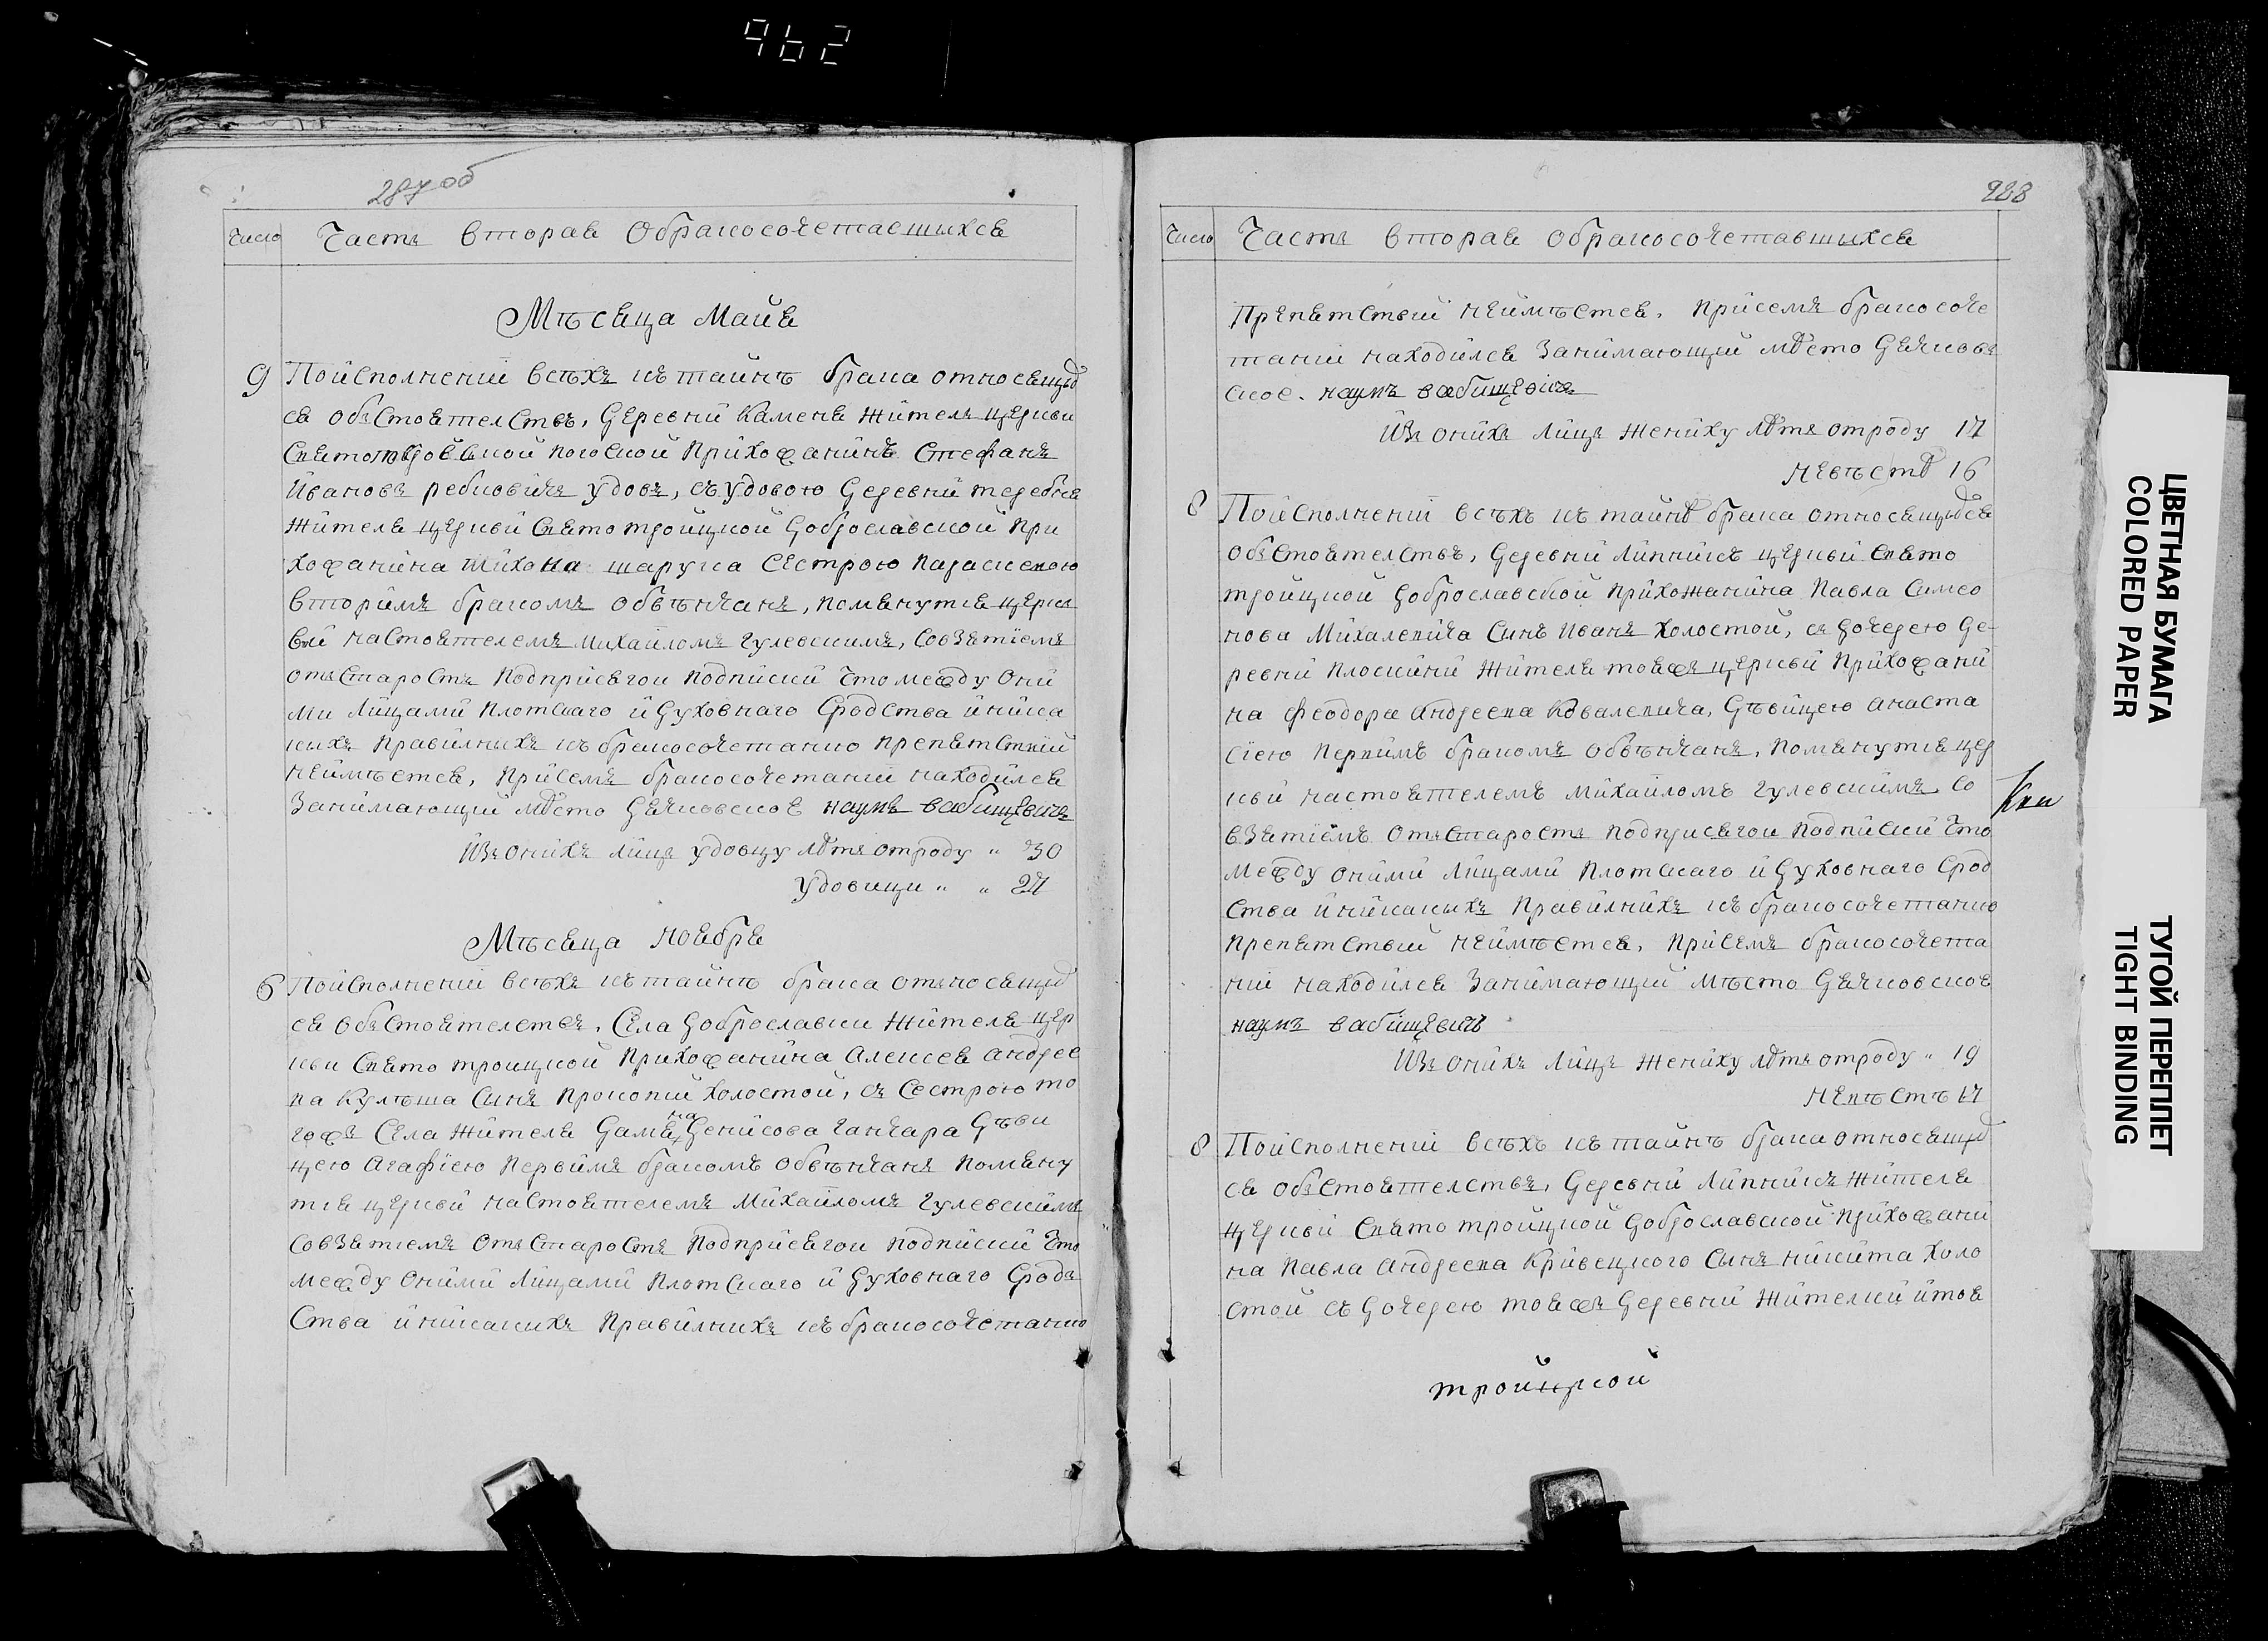 962
287 об
Число Часть вторая обракосочетавшыхся
Мѣсяца Майя
9 Поисполнении всѣхъ къ тайнѣ брака относящыѣ
ся обстоятелствъ, деревни Каменя жителъ церкви
Свято погоской прихожанинъ Стефанъ
Ивановъ ребковичъ удовъ, съ удовою деревни теребня
жителя церкви Свято тройцкой доброславской при
хожанина шарука Сестрою Параскевою
вторимъ бракомъ обвѣнчанъ, помянутія церк
вы настоятелемъ Михайломъ гулевскимъ, совзятіемъ
отъ старостъ подприсягою подписки что между они
ми лицами плотскаго и духовнаго сродства и ника
кихъ правилнихъ къ бракосочетанию препятствий
неимѣется, присемъ бракосочетании находился
занимающий мѣсто дячковское наумъ вабищевичъ
Изъ онихъ лицъ удовцу лѣтъ отроду " 30
удовици " " 27
Мѣсяца ноября
6 Поисполнении всѣхъ къ тайнѣ брака относящыѣ
ся обстоятелствъ, Села доброславки жителя цер
кви Свято троицкой прихожанина Алексея андрее
ва кулѣша Синъ прокопий холостой, съ Сестрою то
гожъ Села жителя дамяна денисова ганчара дѣви
цею агафиею первимъ бракомъ обвѣнчанъ помяну
тія церкви настоятелемъ михайломъ гулевскимъ
совзятиемъ отъ старостъ подприсягою подписки что
между оними лицами плотскаго и духовнаго сродъ
ства и никакихъ правилнихъ къ бракосочетанию
988
Число Часть вторая обракосочетавшыхся
Препятствий неимѣется, присемъ бракосоче
тании находился занимающий мѣсто дячковъ
ское. наумъ вабищевичъ
Изъ онихъ лицъ жениху лѣтъ отроду 17
невѣстѣ 16
8 Поисполнении всѣхъ къ тайнѣ брака относящыѣся
обстоятелствъ, деревни липникъ церкви свято
тройцкой доброславской прихожанина Павла Симео
нова Михалевича Синъ Иванъ холостой, съ дочерею де-
ревни плоскини жителя тояжъ церкви прихожани
на феодора андреева ковалевича, дѣвицею анаста
сиею первимъ бракомъ обвѣнчанъ, помянутія цер
кви настоятелемъ михайломъ гулевскимъ со
взятиемъ отъ старостъ подприсягою подписки что
между оними лицами плотскаго и духовнаго срод
ства и никакихъ правилнихъ къ бракосочетанию
препятствий неимѣется, присемъ бракосочета
нии находился занимающий мѣсто дячковское
наумъ вабищевичъ
Изъ онихъ лицъ жениху лѣтъ отроду " 19
невѣстѣ 17
8 Поисполнении всѣхъ къ тайнѣ брака относящыѣ
ся обстоятелствъ, деревни липникъ жителя
церкви Свято тройцкой доброславской прихожани
на Павла андреева кривецкого Сынъ никита холо
стой съ дочерею тояжъ деревни жителки и тоя
тройцкой
ЦВЕТНАЯ БУМАГА
COLORED PAPER
ТУГОЙ ПЕРЕПЛЕТ
TIGHT BINDING